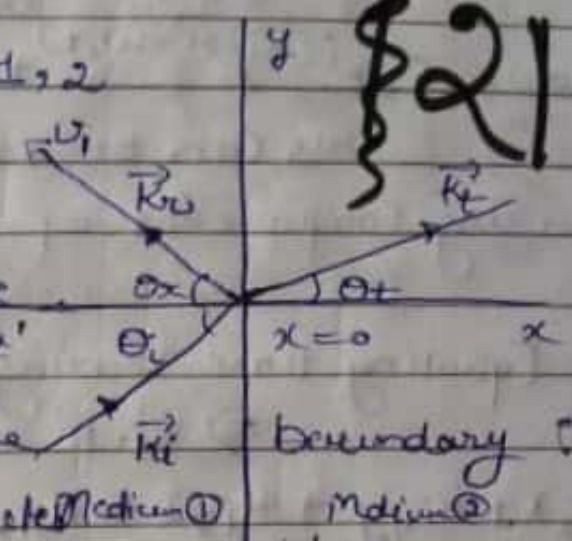 y
21
1, 2
υ₁
K⃗r
K⃗t
θr
θt
θi
x = 0
x
K⃗i
boundary
Medium ①
Mdium ②